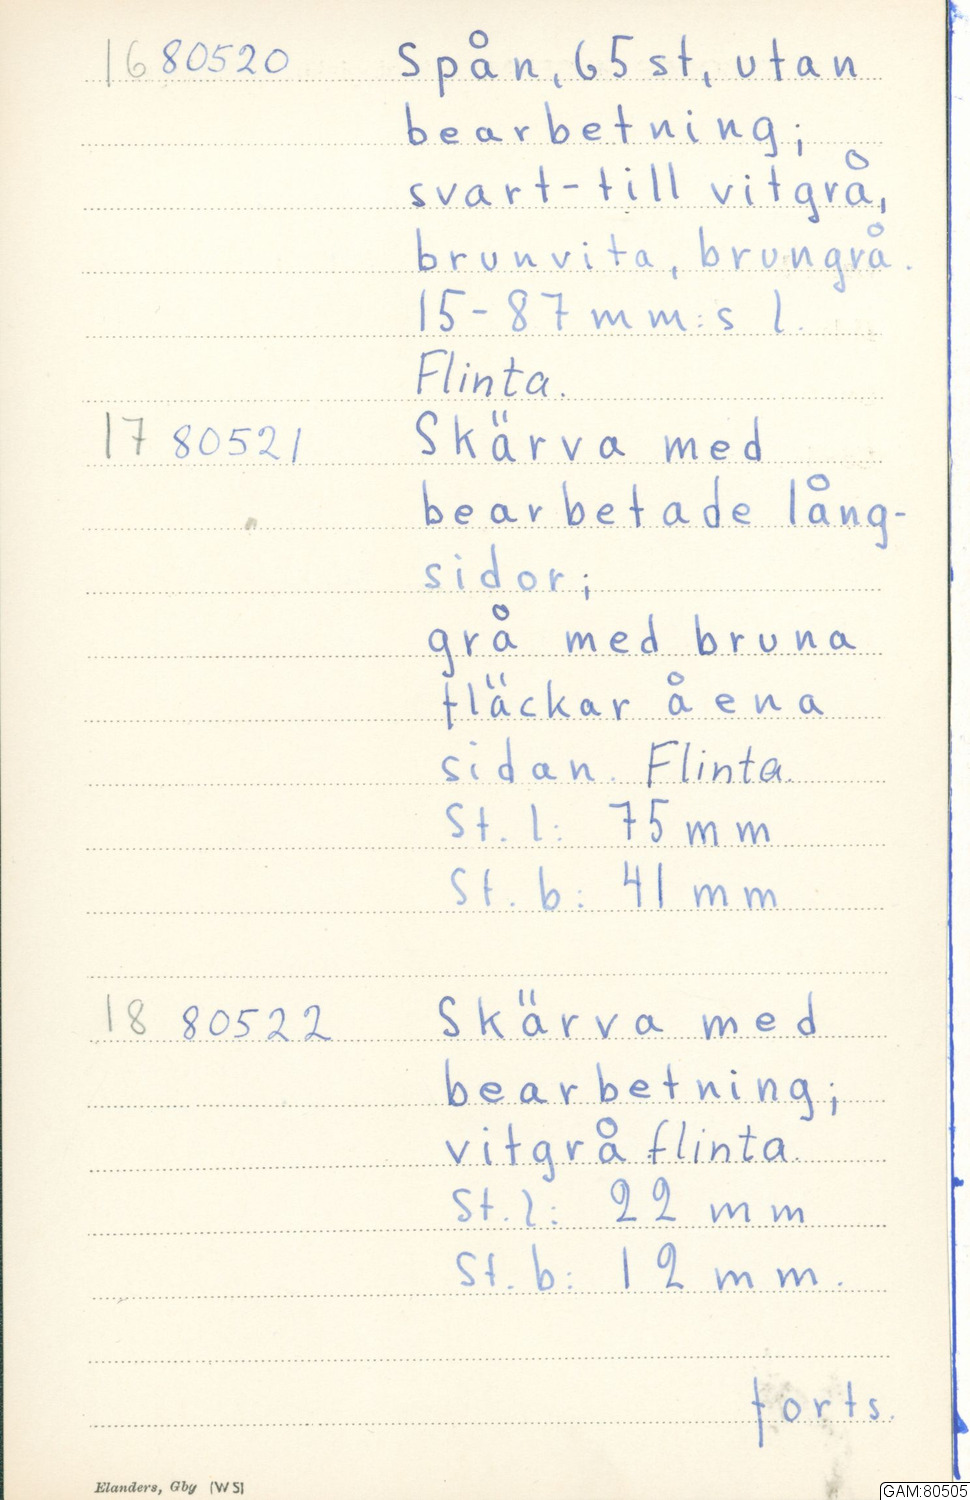 16 80520 Spån, 65 st, utan
bearbetning;
svart- till vitgrå,
brunvita, brungrå.
15-87 mm:s l.
Flinta.
17 80521 Skärva med
bearbetade lång-
sidor;
grå med bruna
fläckar å ena
sidan. Flinta.
St. l: 75 mm
St. b: 41 mm
18 80522 Skärva med
bearbetning;
vitgrå flinta.
St. l: 22 mm
St. b: 12 mm.
forts.
Elanders, Gbg (WS)
GAM:80505